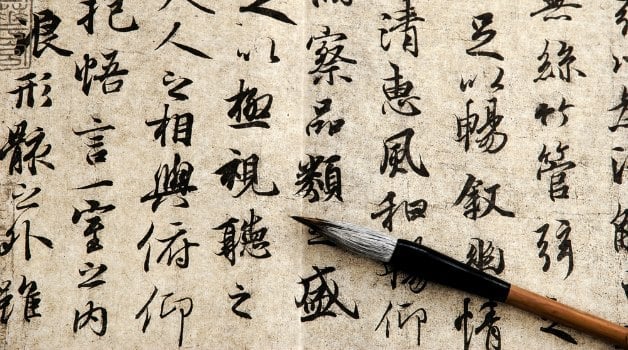 無絲竹管弦之
足以暢敘幽情
清惠風和暢仰
察品類之盛
以極視聽之
人之相與俯仰
抱悟言一室之內
浪形骸之外雖